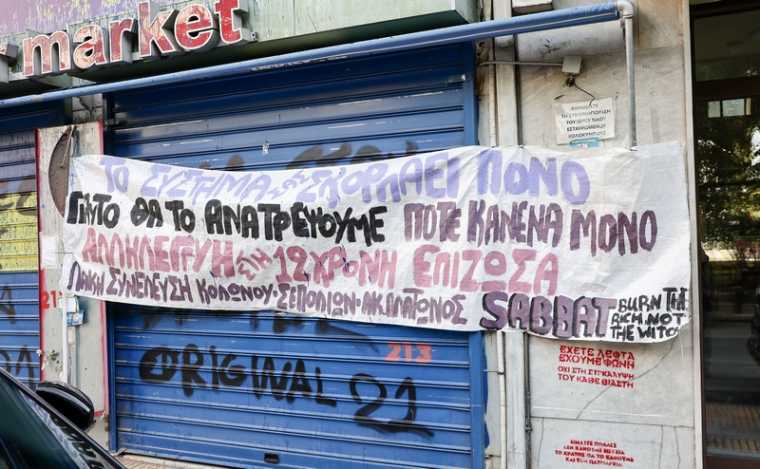 market
ΤΟ ΣΥΣΤΗΜΑ ΣΚΟΡΠΑΕΙ ΠΟΝΟ
ΓΙ'ΑΥΤΟ ΘΑ ΤΟ ΑΝΑΤΡΕΨΟΥΜΕ ΠΟΤΕ ΚΑΝΕΝΑ ΜΟΝΟ
ΑΛΛΗΛΕΓΓΥΗ ΣΤΗ 12ΧΡΟΝΗ ΕΠΙΖΩΣΑ
ΛΑΪΚΗ ΣΥΝΕΛΕΥΣΗ ΚΟΛΩΝΟΥ·ΣΕΠΟΛΙΩΝ·ΑΚ.ΠΛΑΤΩΝΟΣ SABBAT
BURN THE
RICH NOT
THE WITCH
213
ORIGINAL 21
21
ΕΧΕΤΕ ΛΕΦΤΑ
ΕΧΟΥΜΕ ΦΩΝΗ
ΟΧΙ ΣΤΗ ΣΥΓΚΑΛΥΨΗ
ΤΟΥ ΚΑΘΕ ΒΙΑΣΤΗ